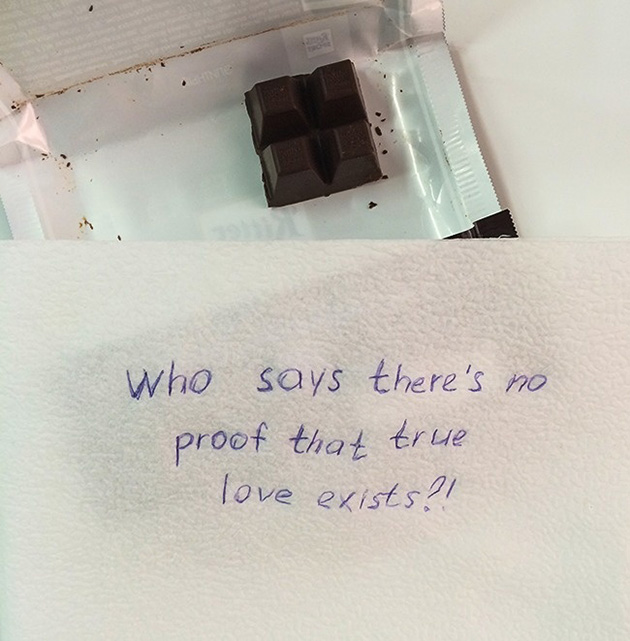 Who says there's no
proof that true
love exists?!